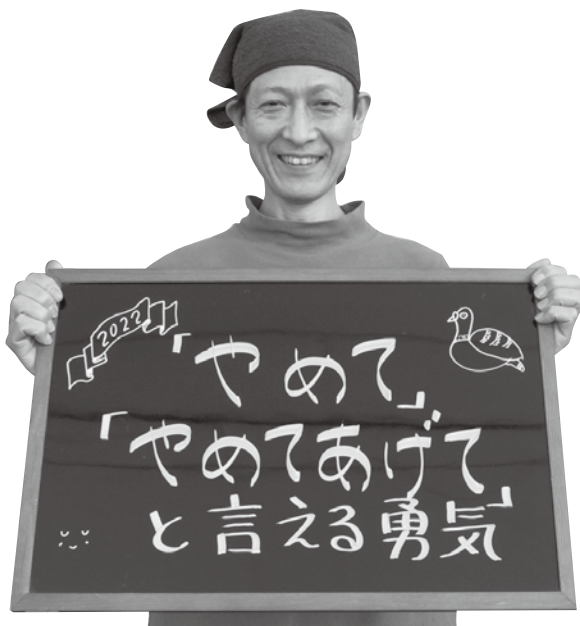 2022
「やめて」
「やめてあげて」
と言える勇気